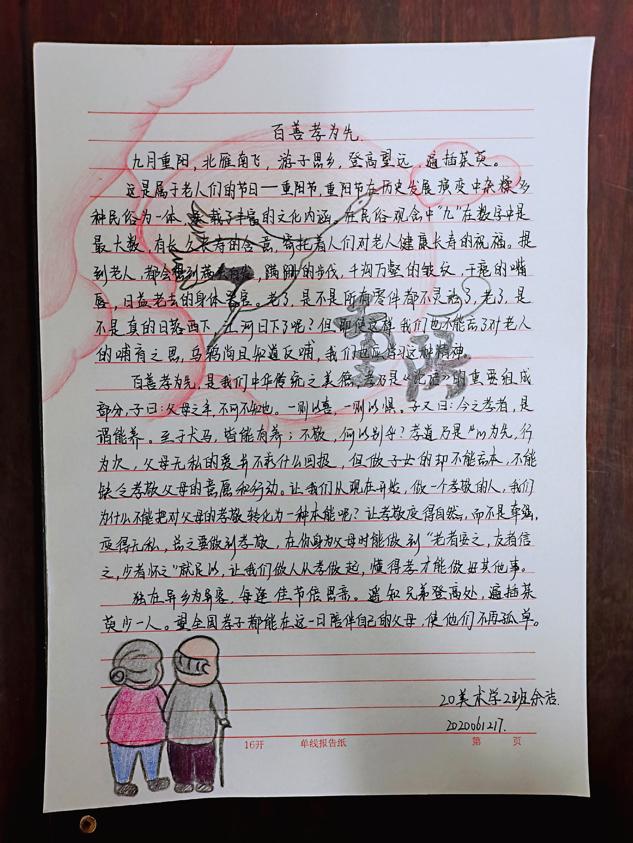 百善孝为先
九月重阳，北雁南飞，游子思乡，登高望远，遍插茱萸。
这是属于老人们的节日一重阳节，重阳节在历史发展演变中杂糅多
种民俗为一体，承载了丰富的文化内涵，在民俗观念中"九"在数字中是
最大数，有长久长寿的含意，寄托着人们对老人健康长寿的祝福。提
到老人，都会想到，蹒跚的步伐，千沟万壑的皱纹，干瘪的嘴
唇，日益老去的身体。老了，是不是所有零件都不灵活了，老了，是
不是真的日落西下，江河日下了呢？但即使这样我们也不能忘了对老人
的哺育之恩，乌鸦尚且知道反哺，我们也应学习这种精神
百善孝为先，是我们中华传统之美德，孝乃是的重要组成
部分，子曰：父母之年，不可不知也。一则以喜，一则以惧。子又曰：今之孝者，是
谓能养。至于犬马，皆能有养；不敬，何以别乎？孝道乃是"心为先，行
为次，父母无私的爱并不求什么回报，但做子女的却不能忘本，不能
缺乏孝敬父母的意愿和行动。让我们从现在开始，做一个孝敬的人，我们
为什么不能把对父母的孝敬转化为一种本能呢？让孝敬变得自然，而不是牵强，
变得无私，总之要做到孝敬，在你身为父母时能做到"老者安之，友者信
之，少者怀之"就足以，让我们做人从孝做起，懂得孝才能做好其他事。
独在异乡为异客，每逢佳节倍思亲。遥知兄弟登高处，遍插茱
萸少一人。望全国孝子都能在这一日陪伴自己的父母，使他们不再孤单。
重阳
20美术学2班余洁
2020061217.
16开 单线报告纸 第 页